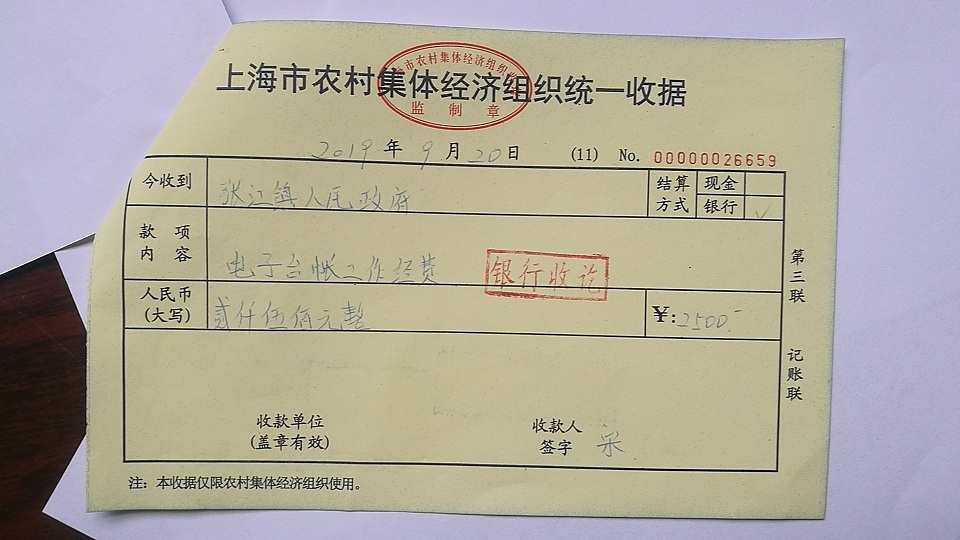 上海市农村集体经济组织统一收据
监制章
2019年9月20日 (11) No. 00000026659
今收到 张江镇人民政府 结算方式 现金
银行 √
款项内容 电子台帐工作经费 银行收讫
人民币(大写) 贰仟伍佰元整 ¥:2500.-
第三联 记账联
收款单位 收款人
(盖章有效) 签字
注:本收据仅限农村集体经济组织使用。